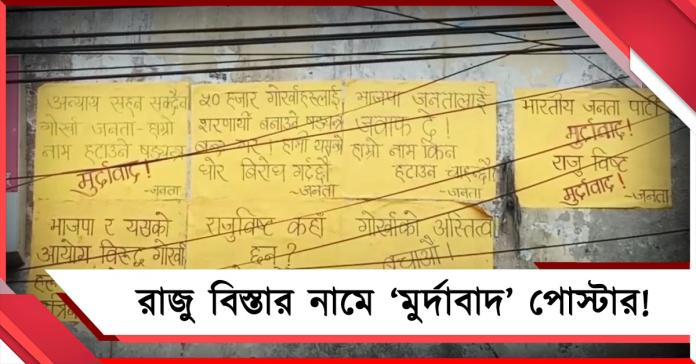 अन्याय सहन सक्दैनौ
गोर्खा जनता - हाम्रो
नाम हटाउने षड्यन्त्र
मुर्दावाद!
-जनता
५० हजार गोर्खाहरूलाई
शरणार्थी बनाउने षड्यन्त्र
बन्द गर। हामी यसको
घोर विरोध गर्दछौं
~जनता
भाजपा जनतालाई
जवाफ दे!
हाम्रो नाम किन
हटाउन चाहन्छौ
-जनता
भारतीय जनता पार्टी
मुर्दावाद!
राजु विष्ट
मुर्दावाद!
-जनता
भाजपा र यसको
आयोग विरुद्ध गोर्खा
राजुविष्ट कहाँ
छन्?
गोर्खाको अस्तित्व
बचाऔं!
রাজু বিস্তার নামে ‘মুর্দাবাদ’ পোস্টার!